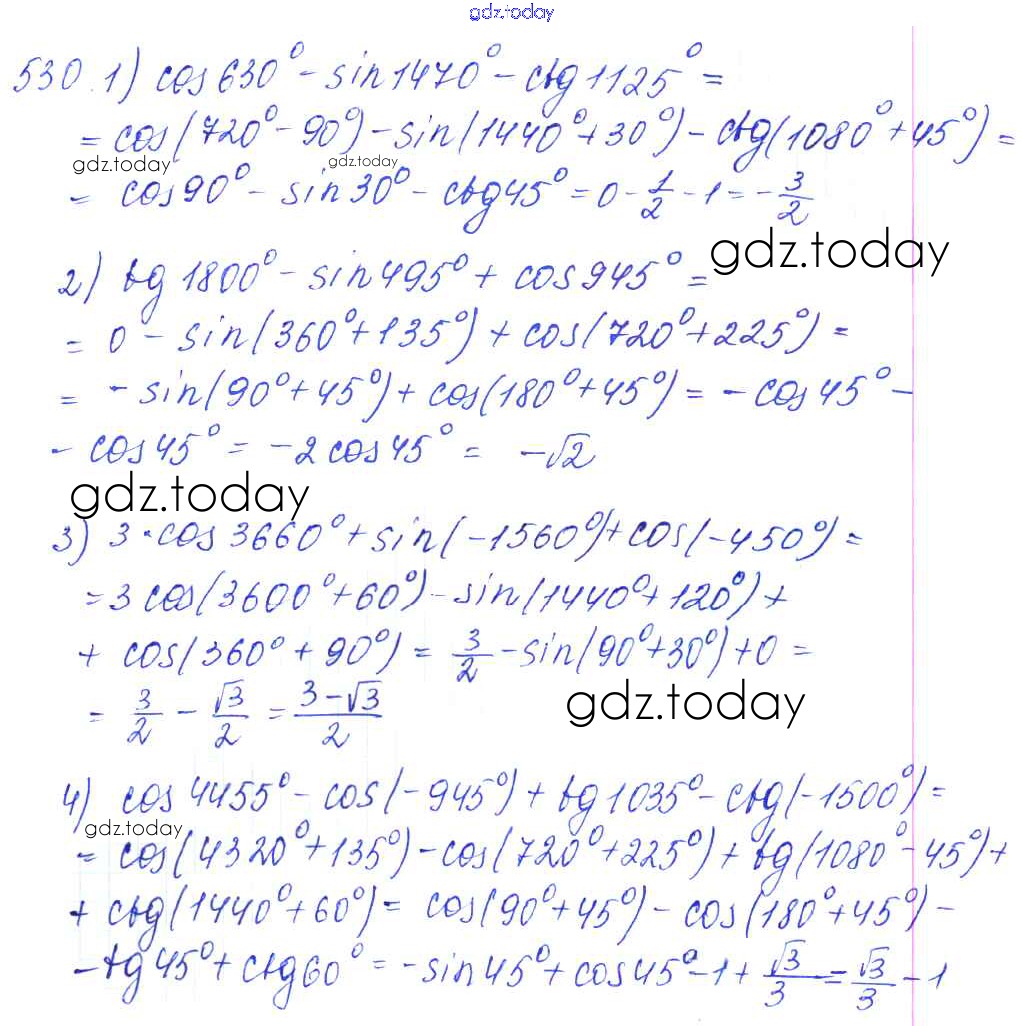 gdz.today
530. 1) cos630° - sin1470° - ctg1125° =
= cos(720° - 90°) - sin(1440° + 30°) - ctg(1080° + 45°) =
gdz.today gdz.today
= cos90° - sin30° - ctg45° = 0 - 1/2 - 1 = - 3/2
gdz.today
2) tg1800° - sin495° + cos945° =
= 0 - sin(360° + 135°) + cos(720° + 225°) =
= - sin(90° + 45°) + cos(180° + 45°) = - cos45° -
- cos45° = -2cos45° = -√2
gdz.today
3) 3·cos3660° + sin(-1560°) + cos(-450°) =
= 3cos(3600° + 60°) - sin(1440° + 120°) +
+ cos(360° + 90°) = 3/2 - sin(90° + 30°) + 0 =
= 3/2 - √3/2 = (3 - √3)/2
gdz.today
4) cos4455° - cos(-945°) + tg1035° - ctg(-1500°) =
gdz.today
= cos(4320° + 135°) - cos(720° + 225°) + tg(1080° - 45°) +
+ ctg(1440° + 60°) = cos(90° + 45°) - cos(180° + 45°) -
- tg45° + ctg60° = - sin45° + cos45° - 1 + √3/3 = √3/3 - 1